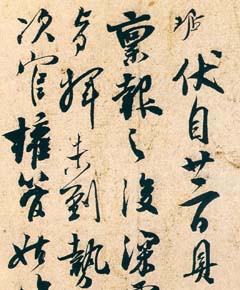 珎
伏自廿二日具
稟報之後深
旨揮未到執
次官權管姑